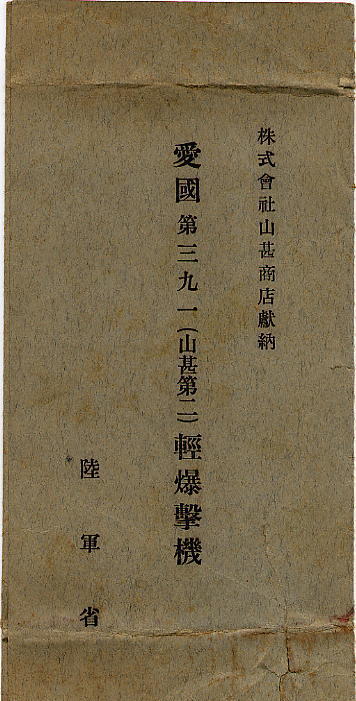 株式會社山甚商店獻納
愛國第三九一(山甚第二)輕爆擊機
陸軍省